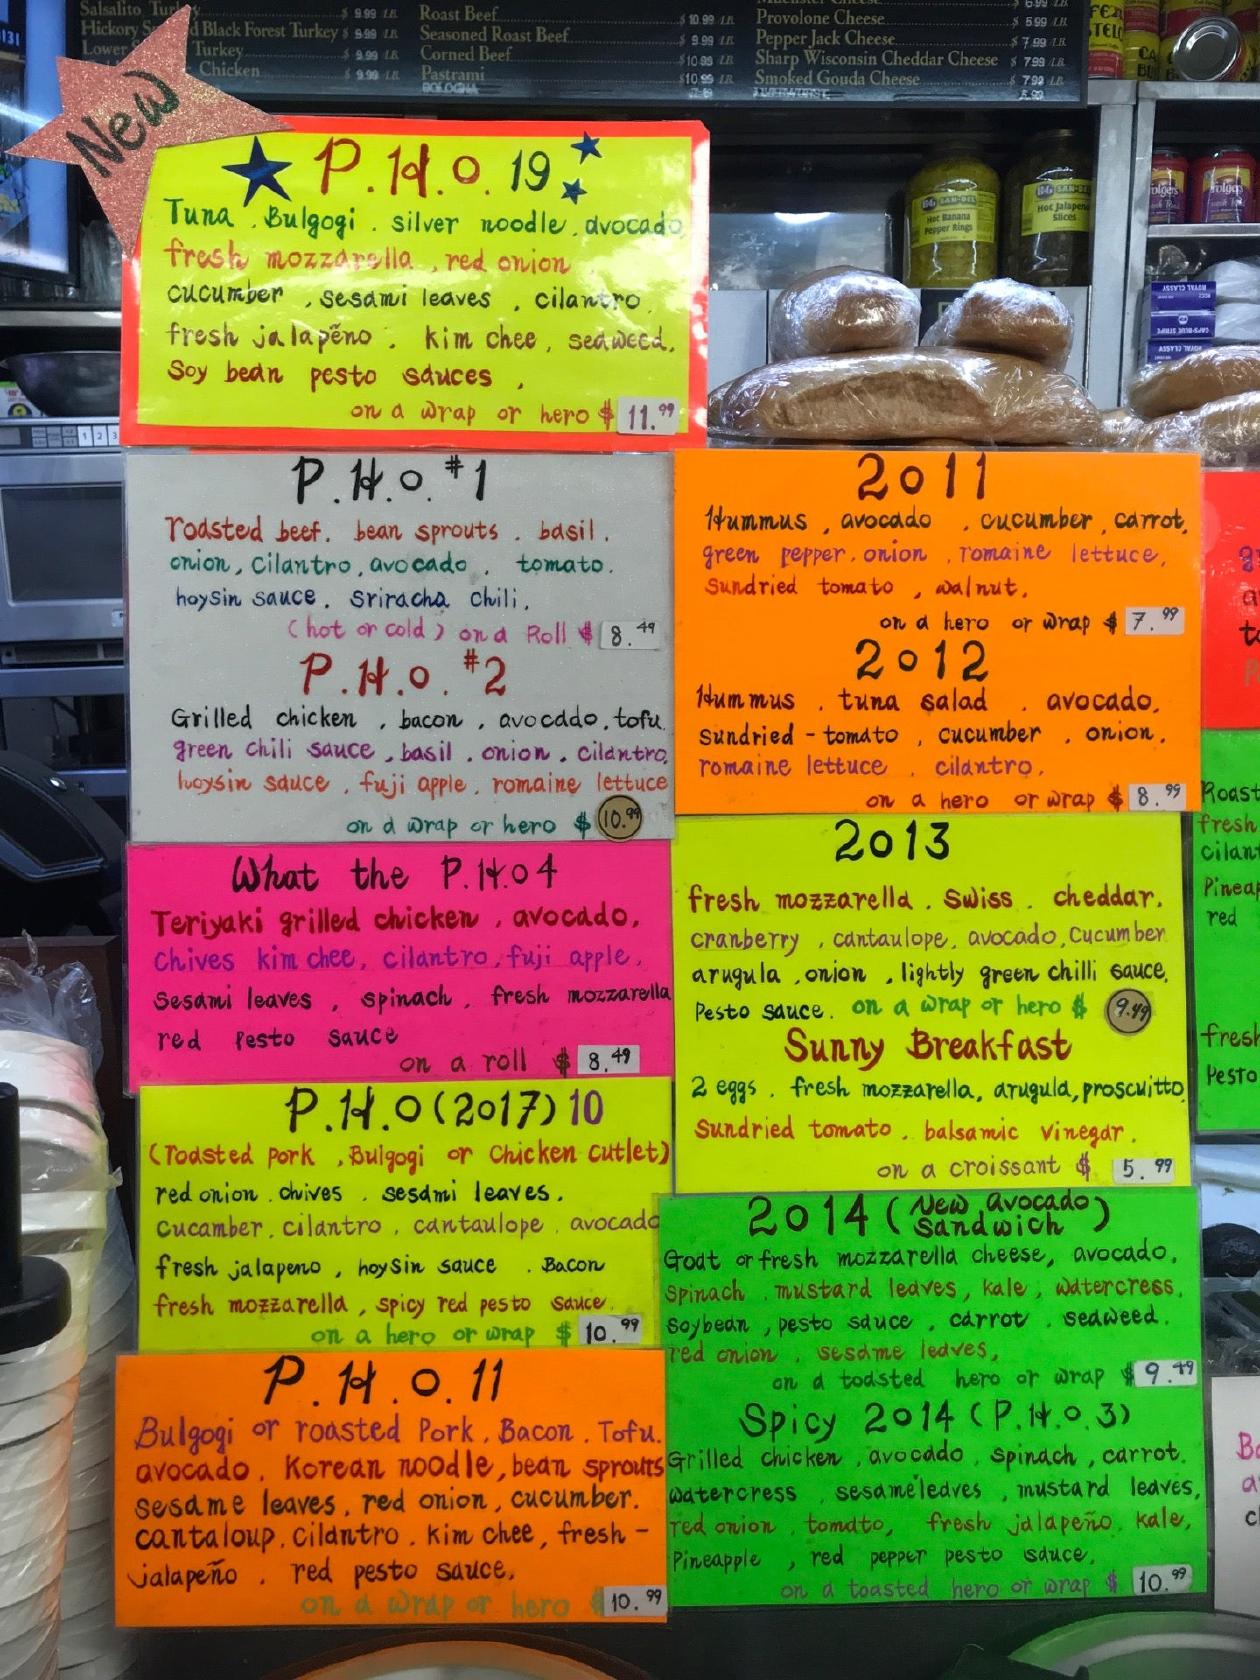 Salsalito Turkey $ 9.99 LB
Hickory Black Forest Turkey $ 9.99 LB
Lower Turkey $ 9.99 LB
Chicken $ 9.99 LB
Roast Beef $ 10.99 LB
Seasoned Roast Beef $ 9.99 LB
Corned Beef $ 10.99 LB
Pastrami $ 10.99 LB
BOLOGNA
Provolone Cheese $ 5.99 LB
Pepper Jack Cheese $ 7.99 LB
Sharp Wisconsin Cheddar Cheese $ 7.99 LB
Smoked Gouda Cheese $ 7.99 LB
New
P.H.O. 19
Tuna . Bulgogi . silver noodle , avocado,
fresh mozzarella , red onion
cucumber , sesami leaves , cilantro,
fresh jalapẽno , kim chee , seaweed,
Soy bean pesto sauces ,
on a wrap or hero $ 11.99
P.H.O. #1
roasted beef. bean sprouts . basil.
onion, cilantro, avocado . tomato.
hoysin sauce . sriracha chili,
(hot or cold) on a Roll $ 8.49
P.H.O. #2
Grilled chicken , bacon , avocado, tofu.
green chili sauce , basil . onion . cilantro,
hoysin sauce , fuji apple, romaine lettuce
on a wrap or hero $ 10.99
What the P.H.O 4
Teriyaki grilled chicken , avocado,
chives kim chee, cilantro, fuji apple,
sesami leaves , spinach , fresh mozzarella
red pesto sauce
on a roll $ 8.49
P.H.O (2017) 10
(roasted pork , Bulgogi or chicken cutlet)
red onion . chives . sesami leaves,
cucamber, cilantro , cantaulope . avocado
fresh jalapeno , hoysin sauce . Bacon
fresh mozzarella , spicy red pesto sauce.
on a hero or wrap $ 10.99
P.H.O. 11
Bulgogi or roasted Pork , Bacon . Tofu.
avocado . Korean noodle, bean sprouts
sesame leaves, red onion, cucumber.
cantaloup, cilantro . kim chee, fresh -
jalapeño . red pesto sauce,
on a wrap or hero $ 10.99
2011
Hummus , avocado , cucumber, carrot,
green pepper, onion , romaine lettuce,
sundried tomato , walnut.
on a hero or wrap $ 7.99
2012
Hummus . tuna salad . avocado,
sundried - tomato , cucumber . onion.
romaine lettuce , cilantro,
on a hero or wrap $ 8.99
2013
fresh mozzarella . Swiss . cheddar.
cranberry , cantaulope, avocado, cucumber
arugula , onion , lightly green chilli sauce,
Pesto sauce. on a wrap or hero $ 9.49
Sunny Breakfast
2 eggs . fresh mozzarella, arugula, proscuitto,
sundried tomato . balsamic vinegar.
on a croissant $ 5.99
2014 (New avocado sandwich)
Goat or fresh mozzarella cheese, avocado,
spinach , mustard leaves, kale , watercress.
soybean , pesto sauce , carrot . seaweed.
red onion , sesame leaves,
on a toasted hero or wrap $ 9.49
Spicy 2014 (P.H.O. 3)
Grilled chicken , avocado , spinach , carrot.
watercress , sesame leaves , mustard leaves,
red onion , tomato, fresh jalapeño, kale,
Pineapple , red pepper pesto sauce,
on a toasted hero or wrap $ 10.99
Roast
fresh
cilan
Pineap
red
fresh
Pesto
SAN-DEL
Hot Banana
Pepper Rings
SAN-DEL
Hot Jalapeno
Slices
Folgers
ROYAL CLASSY